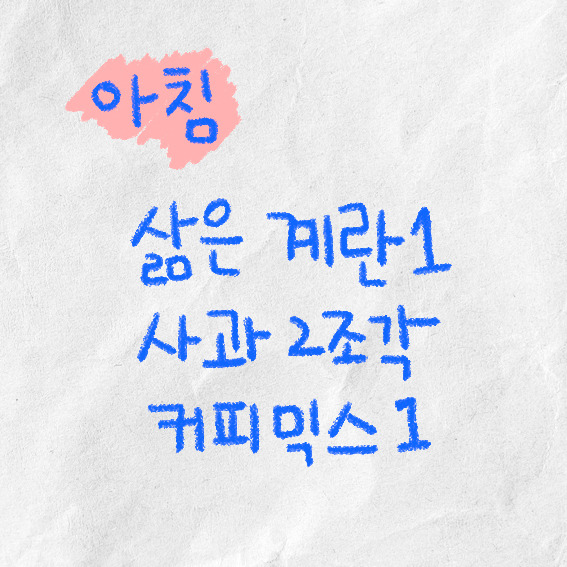 아침
삶은 계란1
사과 2조각
커피믹스1